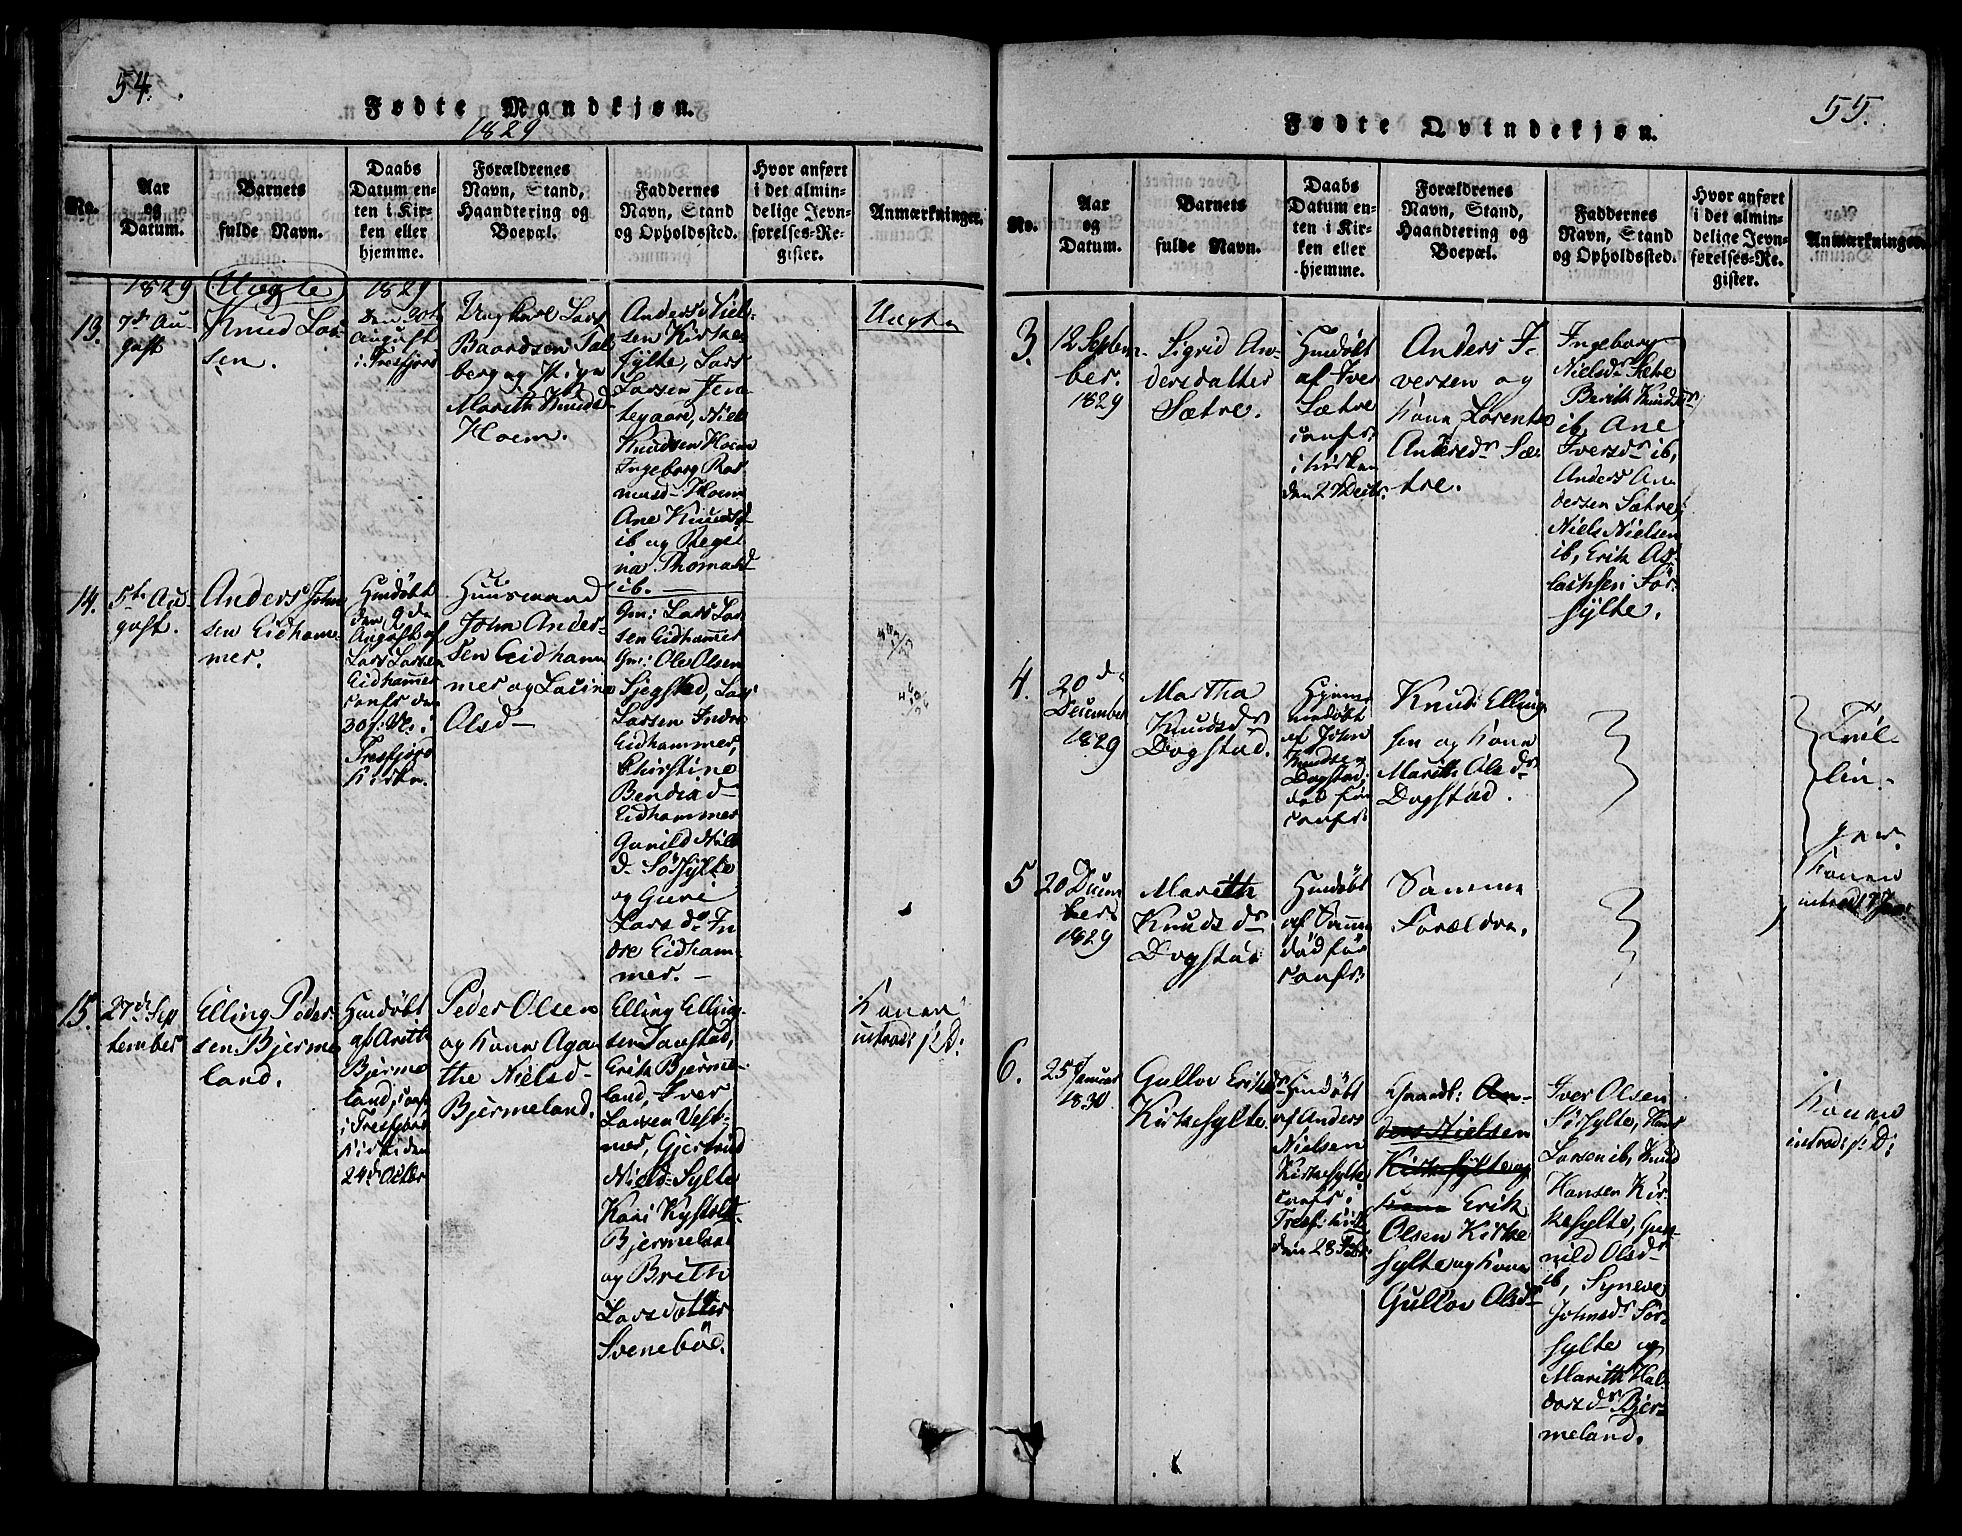 54.
Fødte Mandkjøn.
1829
No.
Aar
og
Datum.
Barnets
fulde Navn.
Daabs
Datum en-
ten i Kir-
ken eller
hjemme.
Forældrenes
Navn, Stand,
Haandtering og
Boepæl.
Faddernes
Navn, Stand
og Opholdssted.
Hvor anført
i det almin-
delige Jevn-
førelses-Re-
gister.
Anmærkninger.
1829
13.
7de Au
gust
Uægte
Knud Lar-
sen.
1829
den 30te
August
i Tresfjord
Ungkarl Lars
Baardsen
berg og Pigen
Marith Knudsd
Hoem.
Anders Niel-
sen Kirke
sylte, Lars
Larsen
tegaard, Niels
Knudsen Hoem
Ingeborg Ras
musd- Hoem
Ane Knudsd
ib og Regi
na Thomasd
ib. -
Uægte
14.
5te Au
gust.
Anders John
sen Eidham-
mer.
Hmdöbt
den 9de
August af
Lars Larsen
Eidhammer
confr den
30
Tresfjord
Kirke.
Huusmand
John Ander-
sen Eidham
mer og
Olsd-
Gm: Lars Lar
sen Eidhammer
Gm: Ole Olsen
Sjegstad, Lars
Larsen Indre
Eidhammer,
Christine
Eidhammer
Gunild Niels
d- Sörsylte
og Guri
Lars dr In
dre Eidham-
mer. -
15.
27de Sep
tember
Elling Peder-
sen Bjerme
land.
Hmdöbt
af Arith
Bjerme
land, conf
i Tresfjord
Kirke den
24de Octbr
Peder Olsen
og Kone Aga
the Nielsd-
Bjermeland.
Elling Elling-
sen
Erik Bjerme-
land, Iver
Larsen Vest-
nes, Gjertrud
Nielsd- Sylte
Kari
Bjermeland
og Brith
Larsdatter
Sveneböe.
Konen
introd: s: D:
55.
Fødte Qvindekjøn.
No.
Aar
og
Datum.
Barnets
fulde Navn.
Daabs
Datum en-
ten i Kir-
ken eller
hjemme.
Forældrenes
Navn, Stand,
Haandtering og
Boepæl.
Faddernes
Navn, Stand
og Opholdssted.
Hvor anført
i det almin-
delige Jevn-
førelses-Re-
gister.
Anmærkninger.
3.
12 Septem-
ber.
1829
Sigrid An-
dersdatter
Sætre.
Hmdöbt
af Iver
Sætre
confr:
i kirken
den 27 Decbr.
Anders I-
versen og
Kone Lorentse
Andersdr Sæ-
tre.
Ingeborg
Nielsdr Sætre
Berith Knudsdr
ib, Ane
Iversdr ib,
Anders An
dersen Sætre,
Niels Nielsen
ib, Erik As
lachsen Sör-
sylte.
4.
20de
December
1829
Martha
Knudsdr
Dogstad.
Hjem
medöbt
af John
Knudsen
Dogstad,
död för
confr:
Knud Elling
sen og Kone
Marith Olsdr
Dogstad.
Tvil-
lin-
ger.
Konen
5
20 Decem
bers
1829
Marith
Knuds dr
Dogstad
Hmdöbt
af Samme
död för
confr:
Samme
Forældre.
6.
25 Januar
1830
Gullov Eriksdr
Kirkesylte.
Hmdöbt
af Anders
Nielsen
Kirkesylte
confr: i
Tresf: Kirke
den 28 Febr:
Gaardb: An-
ders Nielsen
Kirkesylte og
Kone Erik
Olsen Kirke
sylte og Kone
Gullov Olsdr
Iver Olsen
Sörsylte, Hans
Larsen ib, Knud
Hansen Kir-
kesylte, Gun
nild Olsdr
ib, Syneve
Johnsdr Sör-
sylte og
Marith Hal-
dorsdr Bjer-
meland.
Konen
introd: s: D: